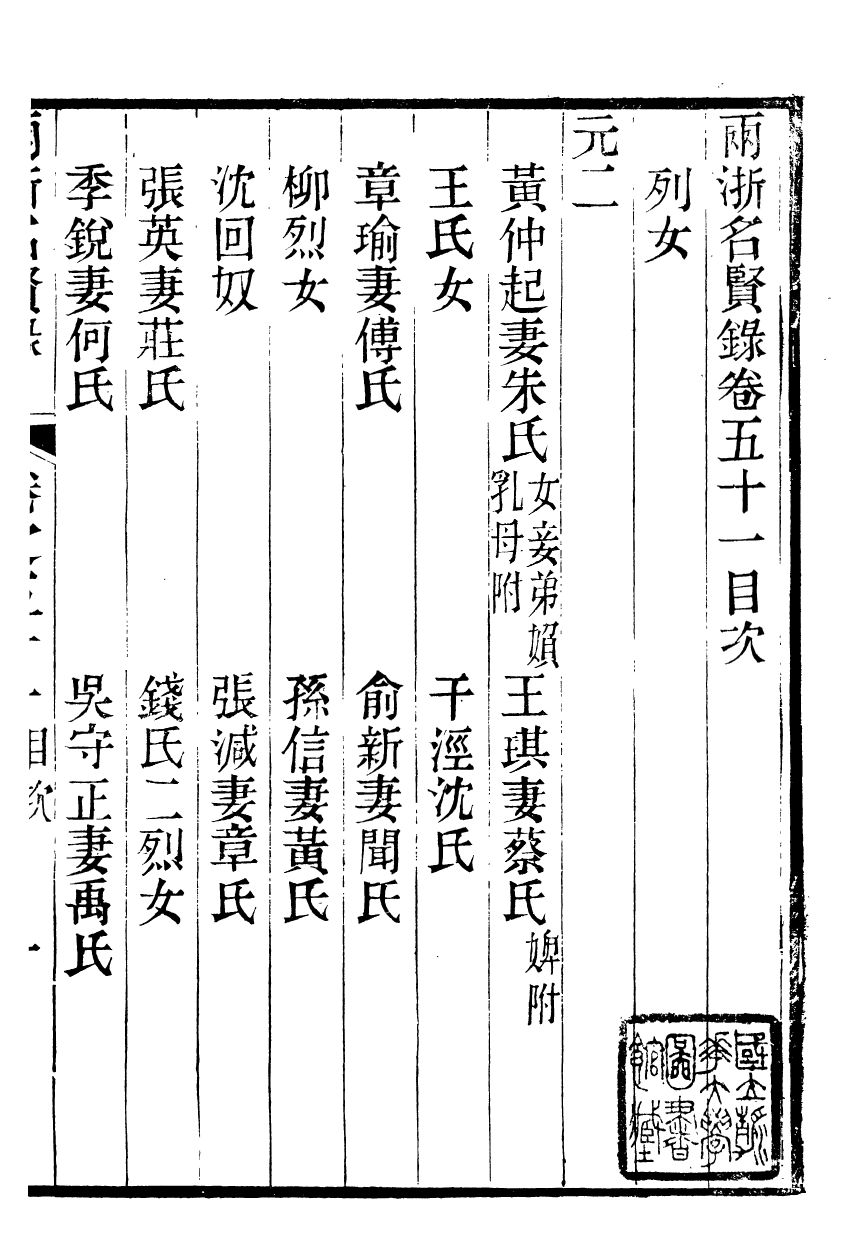 兩浙名賢錄卷五十一目次
列女
元二
黃仲起妻朱氏女妾弟媍乳母附　王琪妻蔡氏婢附
王氏女　干湹沈氏
章瑜妻傅氏　俞新妻聞氏
柳烈女　孫信妻黃氏
沈回奴　張減妻章氏
張英妻莊氏　錢氏二烈女
季銳妻何氏　吳守正妻禹氏
兩浙名賢錄　卷之五十一目次　一
國立清華大學圖書館藏